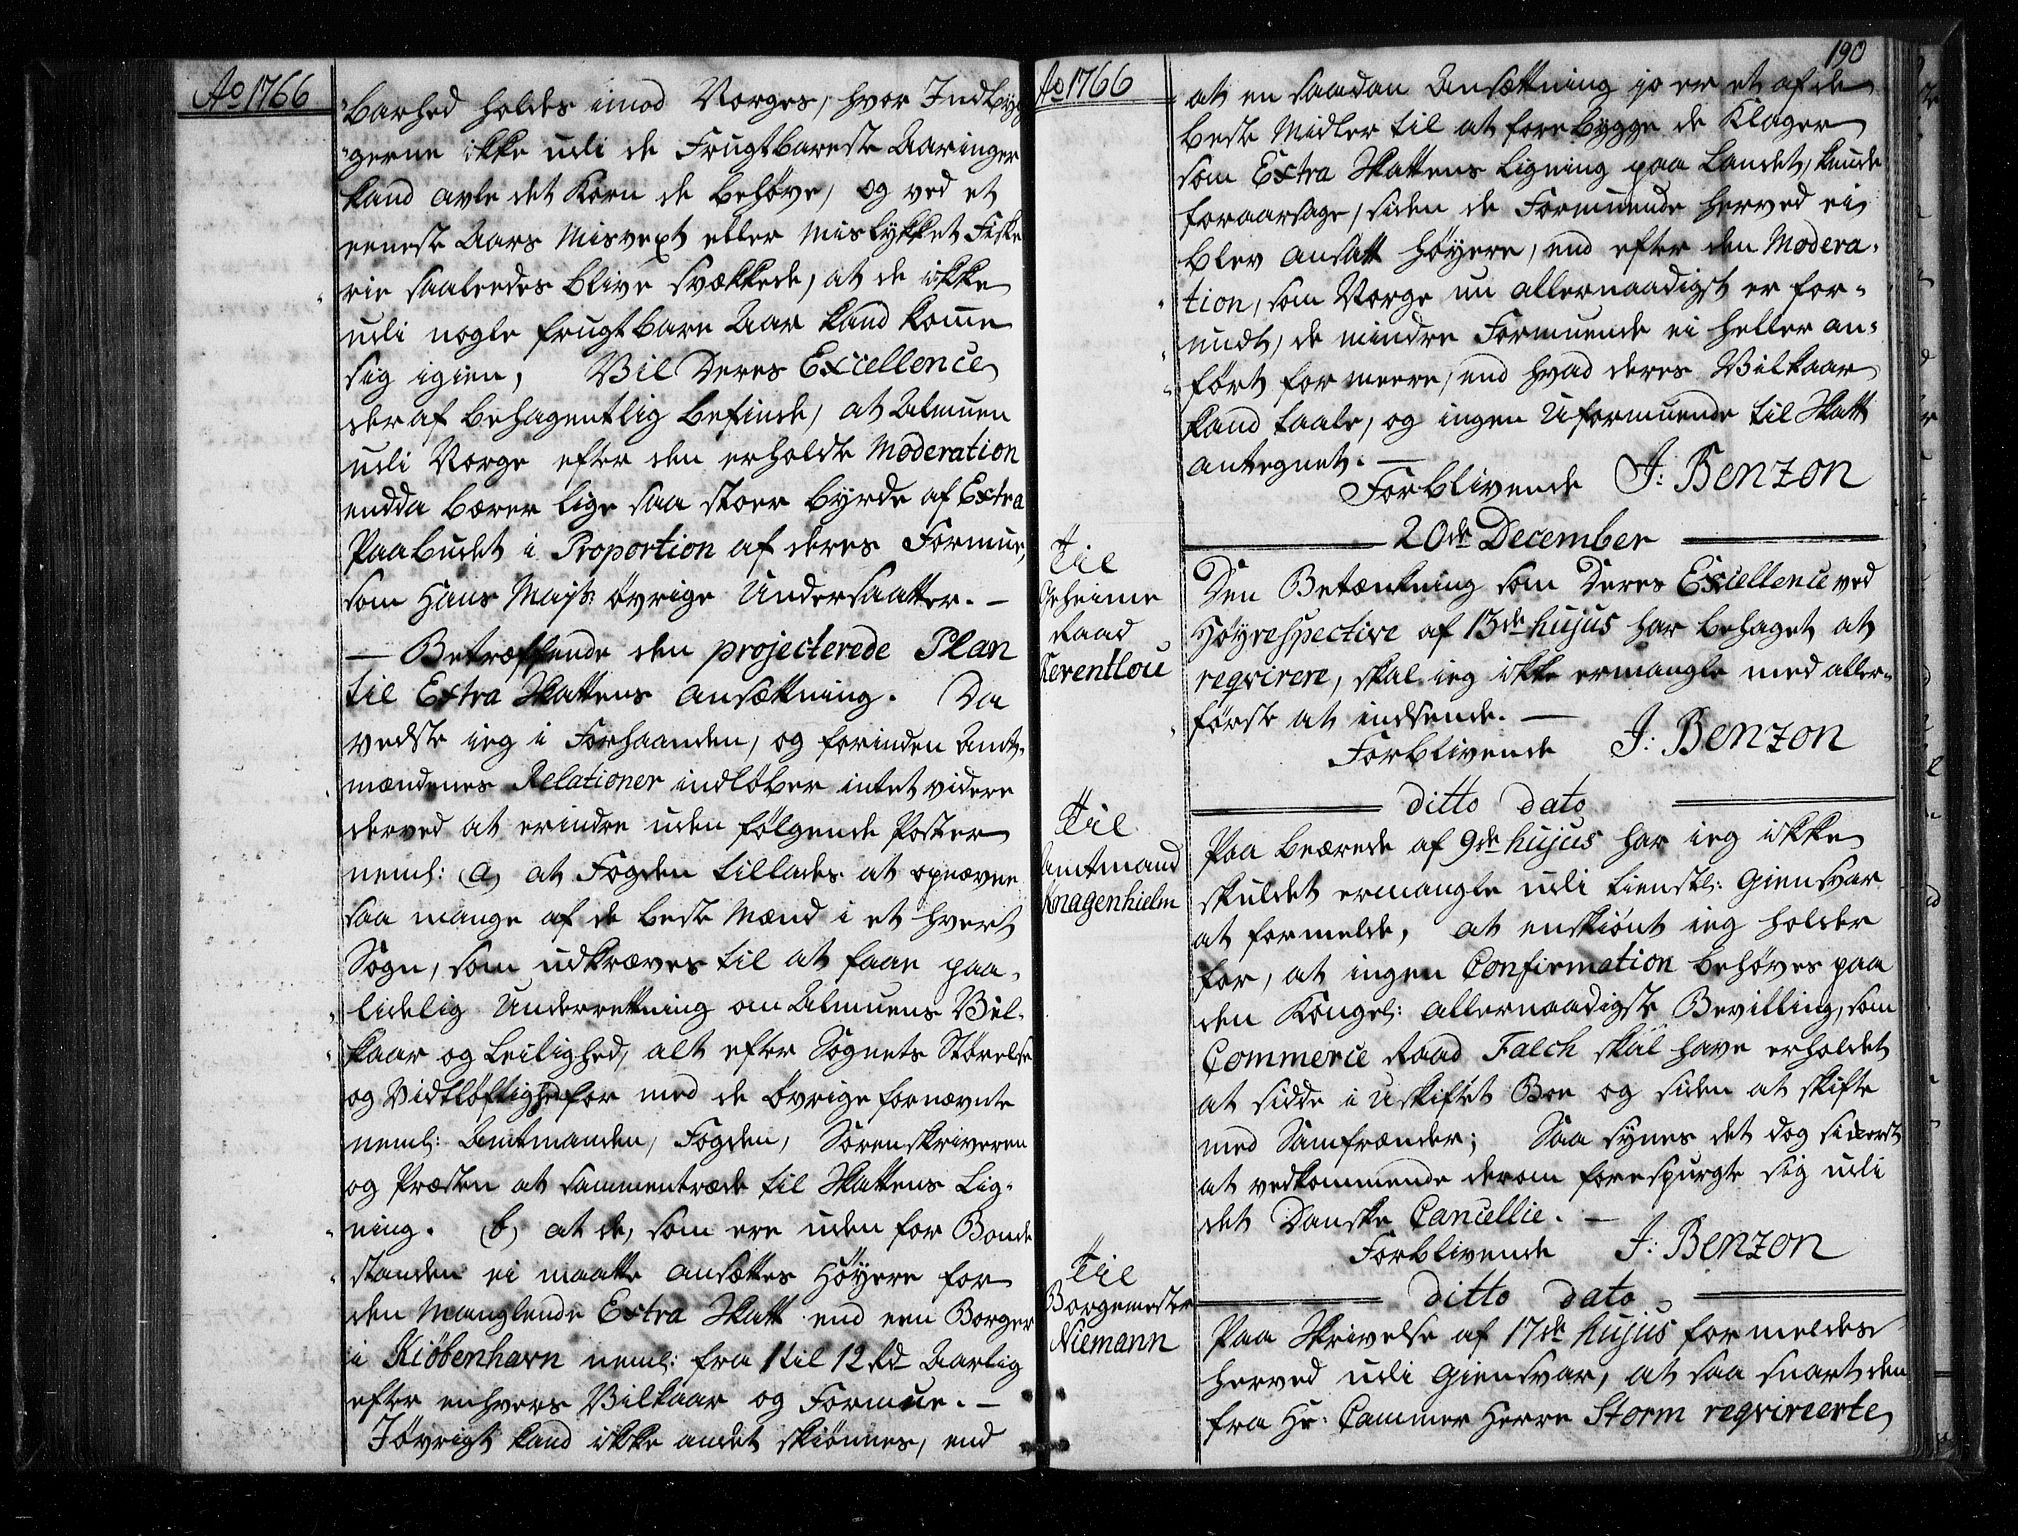 Ao 1766
barhed holdes imod Norges, hvor Indbyg
gerne ikke udi de Frugtbareste Aaringer
kand avle det Korn de behøve, og ved et
eeneste Aars Misvext eller mislykket Fiske
rie saaledes blive svækkede, at de ikke
udi nogle frugtbare Aar kand komme
sig igien, Vil Deres Excellence
deraf behagentlig befinde, at Almuen
udi Norge efter den erholdte Moderation
endda bærer lige saa stoer byrde af Extra
Paabudet i Proportion af deres Formue,
som Hans Mayts: øvrige Undersaatter. —
— Betræffende den projecterede Plan
til Extra Skattens Ansættning. Da
vedste ieg i Forhaanden, og forinden Amt-
mændenes Relationer indløber intet videre
derved at erindre uden følgende Poster
neml: a, at Fogden tillades at opnævne
saa mange af de beste Mænd i et hvert
Sogn, som udkræves til at faae paa-
lidelig Underretning om Almuens Vil-
kaar og Leilighed, alt efter Sognets Størelse
og Vidtløftighed for med de øvrige fornævnte
neml: Amtmanden, Fogden, Sorenskriveren
og Præsten at sammentræde til Skattens Lig-
ning. b, at de, som ere uden for Bonde
standen ei maatte ansættes høyere for
den Manglende Extra Skatt end een Borger
i Kiøbenhavn neml: fra 1 til 12 Rd Aarlig
efter enhvers Vilkaar og Formue. —
Iøvrigt kand ikke andet skiønnes, end
190
Ao 1766
at en saadan Ansættning jo er et af de
beste Midler til at forebygge de Klager
som Extra Skattens Ligning paa Landet, kunde
foraarsage, siden de Formuende herved ei
blev ansatt høyere, end efter den Modera-
tion, som Norge nu allernaadigst er for-
undt, de mindre Formuende ei heller an-
ført for meere, end hvad deres Vilkaar
kand taale, og ingen Uformuende til Skatt
antegnet. —
Forblivende J: Benzon
20de December
Til
Geheime
Raad
Reventlou
Den Betænkning som Deres Excellence ved
Høyrespective af 13de hujus har behaget at
reqvirere, skal ieg ikke ermangle med aller-
første at indsende. —
Forblivende J: Benzon
ditto dato
Til
Amtmand
Knagenhielm
Paa beærede af 9de hujus har ieg ikke
skuldet ermangle udi tienstl: Giensvar
at formelde, at enskiønt ieg holder
for, at ingen Confirmation behøves paa
den Kongel: allernaadigste Bevilling, som
Commerce Raad Falch skal have erholdet
at sidde i Uskiftet Boe og siden at skifte
med Samfrænder; Saa synes det dog sickerst
at vedkommende derom forespurgte sig udi
det Danske Cancellie. —
Forblivende J: Benzon
ditto dato
Til
Borgemester
Niemann
Paa Skrivelse af 17de hujus formeldes
herved udi Giensvar, at saa snart den
fra Hr: Cammer Herre Storm reqvireerte